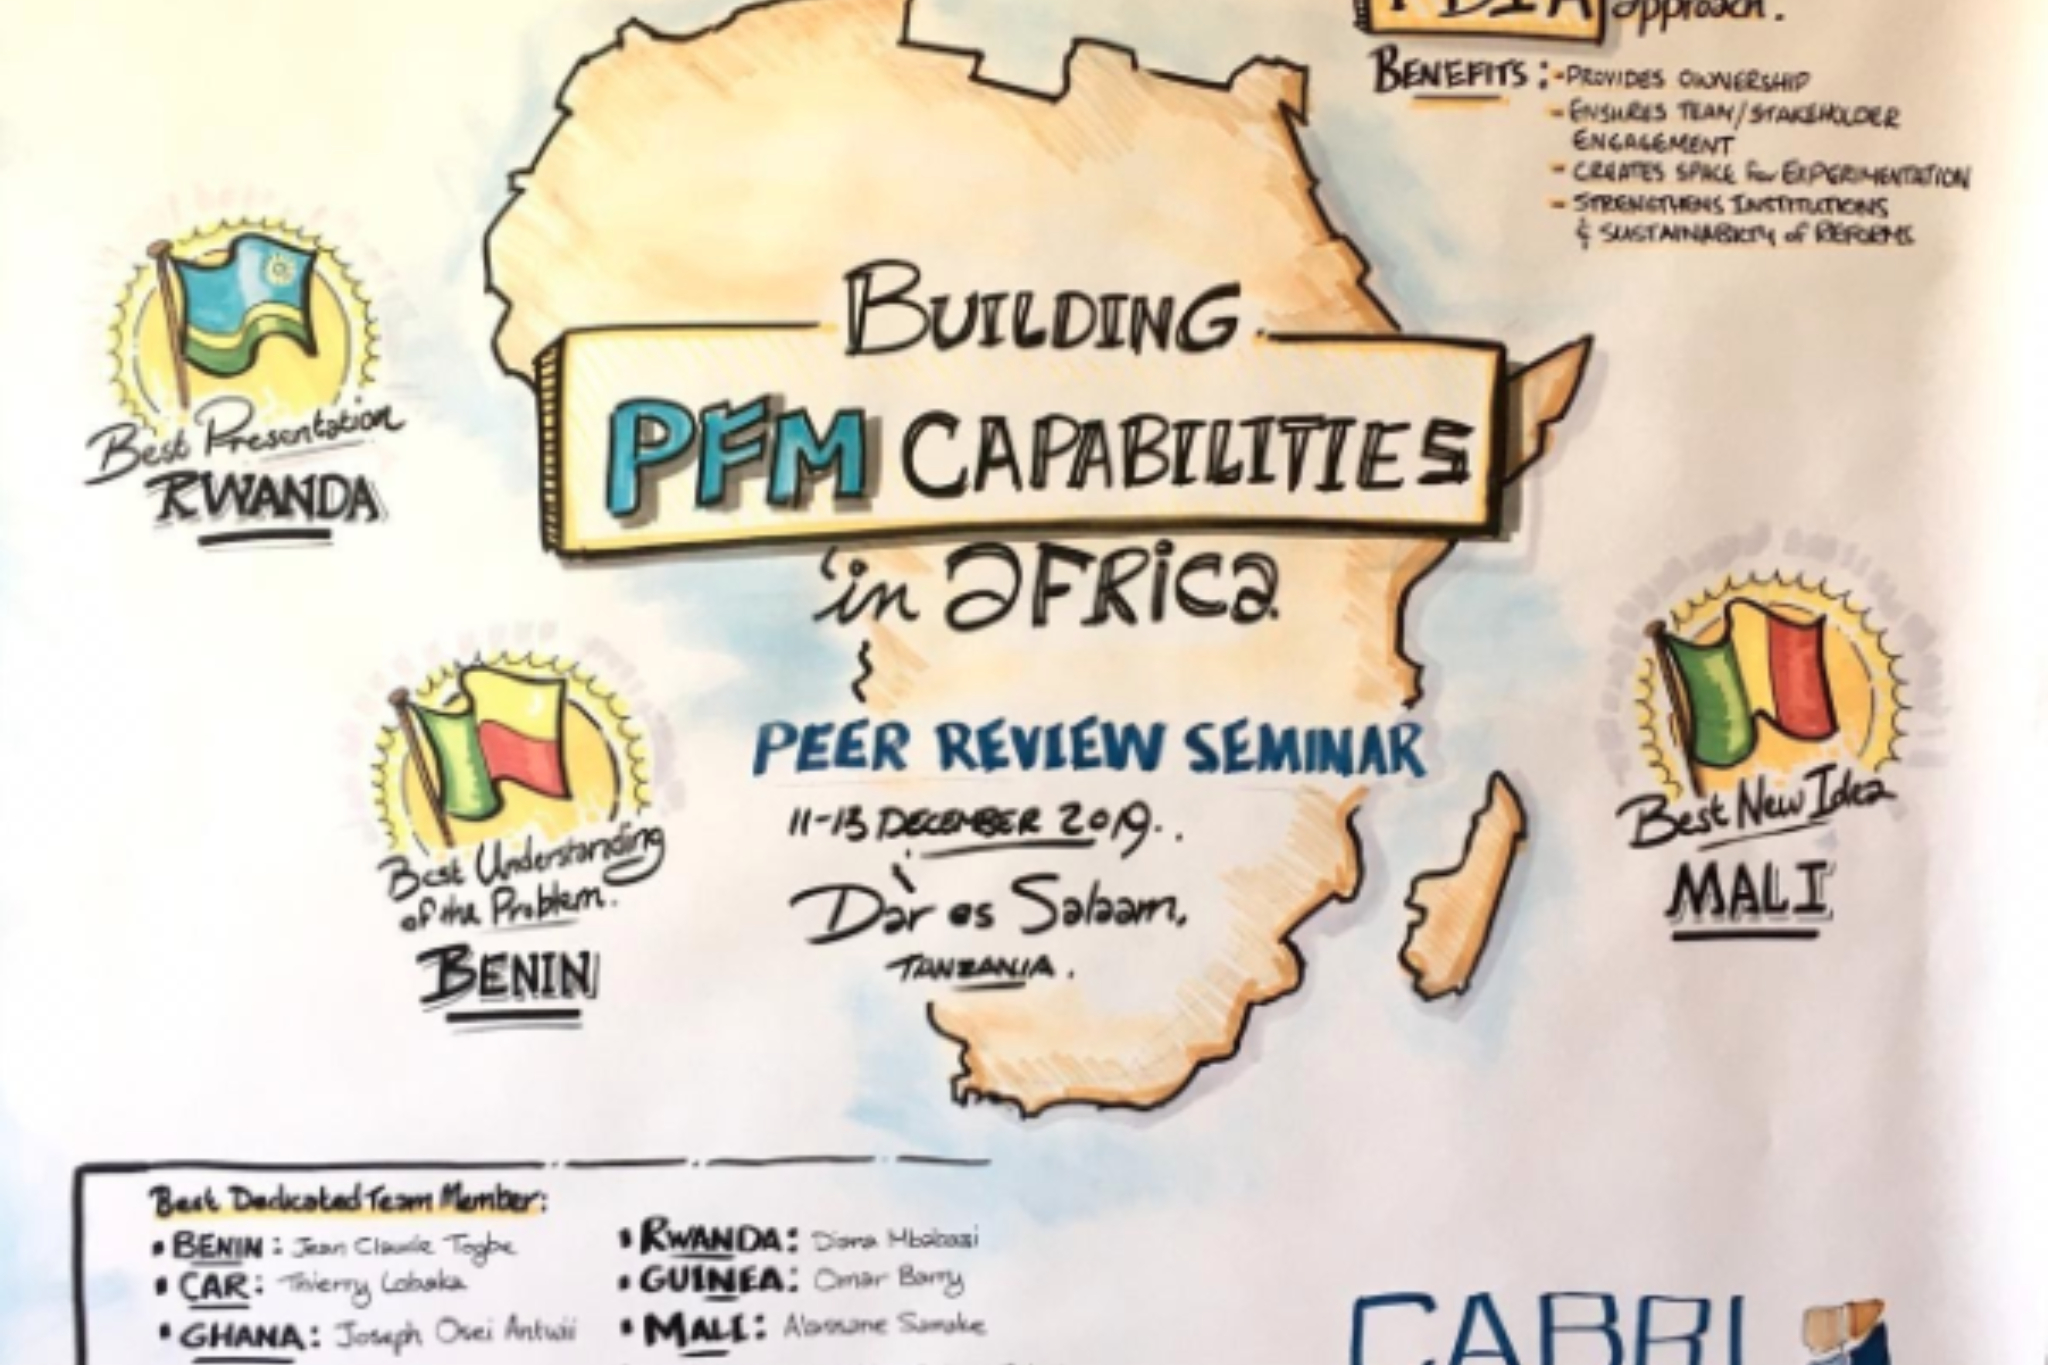 PDIA approach.
BENEFITS: - PROVIDES OWNERSHIP
- ENSURES TEAM/STAKEHOLDER
ENGAGEMENT
- CREATES SPACE for EXPERIMENTATION
- STRENGTHENS INSTITUTIONS
& SUSTAINABILITY of REFORMS
BUILDING
PFM CAPABILITIES
in aFRica
Best Presentation
RWANDA
PEER REVIEW SEMINAR
11-13 DECEMBER 2019.
Dar es Salaam,
TANZANIA.
Best Understanding
of the Problem.
BENIN
Best New Idea
MALI
Best Dedicated Team Member:
• BENIN: Jean Claude Togbe
• CAR: Thierry Lobaka
• GHANA: Joseph Osei Antwi
• RWANDA: Diana Mbabazi
• GUINEA: Omar Barry
• MALI: Alassane Samake
CABRI